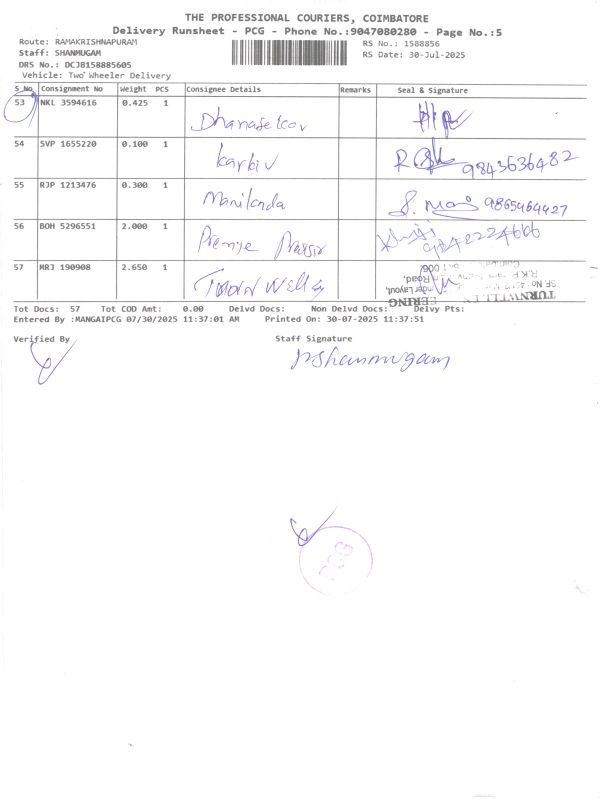 THE PROFESSIONAL COURIERS, COIMBATORE
Delivery Runsheet - PCG - Phone No.:9047080280 - Page No.:5
Route: RAMAKRISHNAPURAM
RS No.: 1588856
Staff: SHANMUGAM
RS Date: 30-Jul-2025
DRS No.: DCJB158885605
Vehicle: Two Wheeler Delivery
S_No Consignment No Weight PCS Consignee Details Remarks Seal & Signature
53 NKL 3594616 0.425 1
54 SVP 1655220 0.100 1 Karkiv 9843636482
55 RJP 1213476 0.300 1 Manikanda S. Mani 9865464427
56 BOH 5296551 2.000 1 9842224666
57 MRJ 190908 2.650 1
SF No:
Road,
TURNWELL
Tot Docs: 57 Tot COD Amt: 0.00 Delvd Docs: Non Delvd Docs: Delvy Pts:
Entered By :MANGAIPCG 07/30/2025 11:37:01 AM Printed On: 30-07-2025 11:37:51
Verified By Staff Signature
Shanmugam
PCG